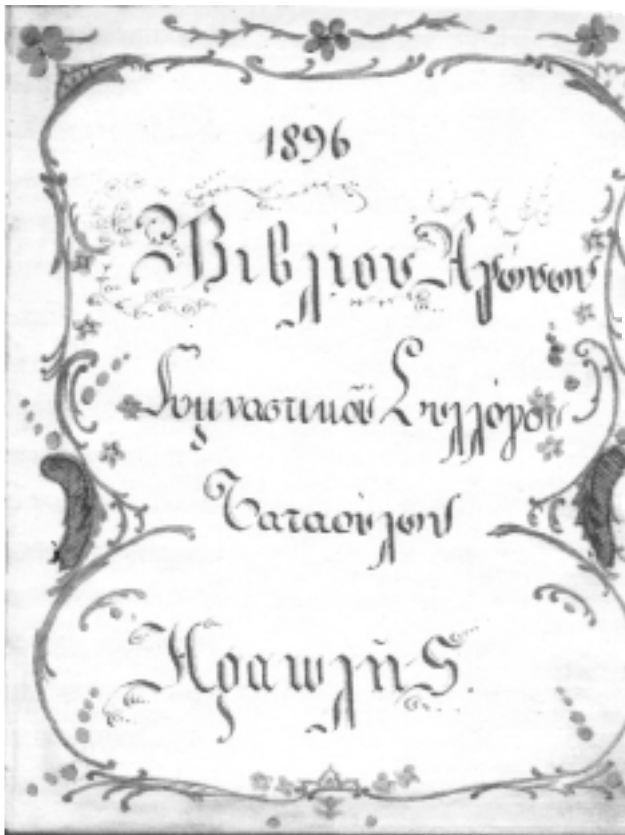 1896
Βιβλίον Ἀγώνων
Γυμναστικοῦ Συλλόγου
Ταταούλων
Ἡρακλῆς.